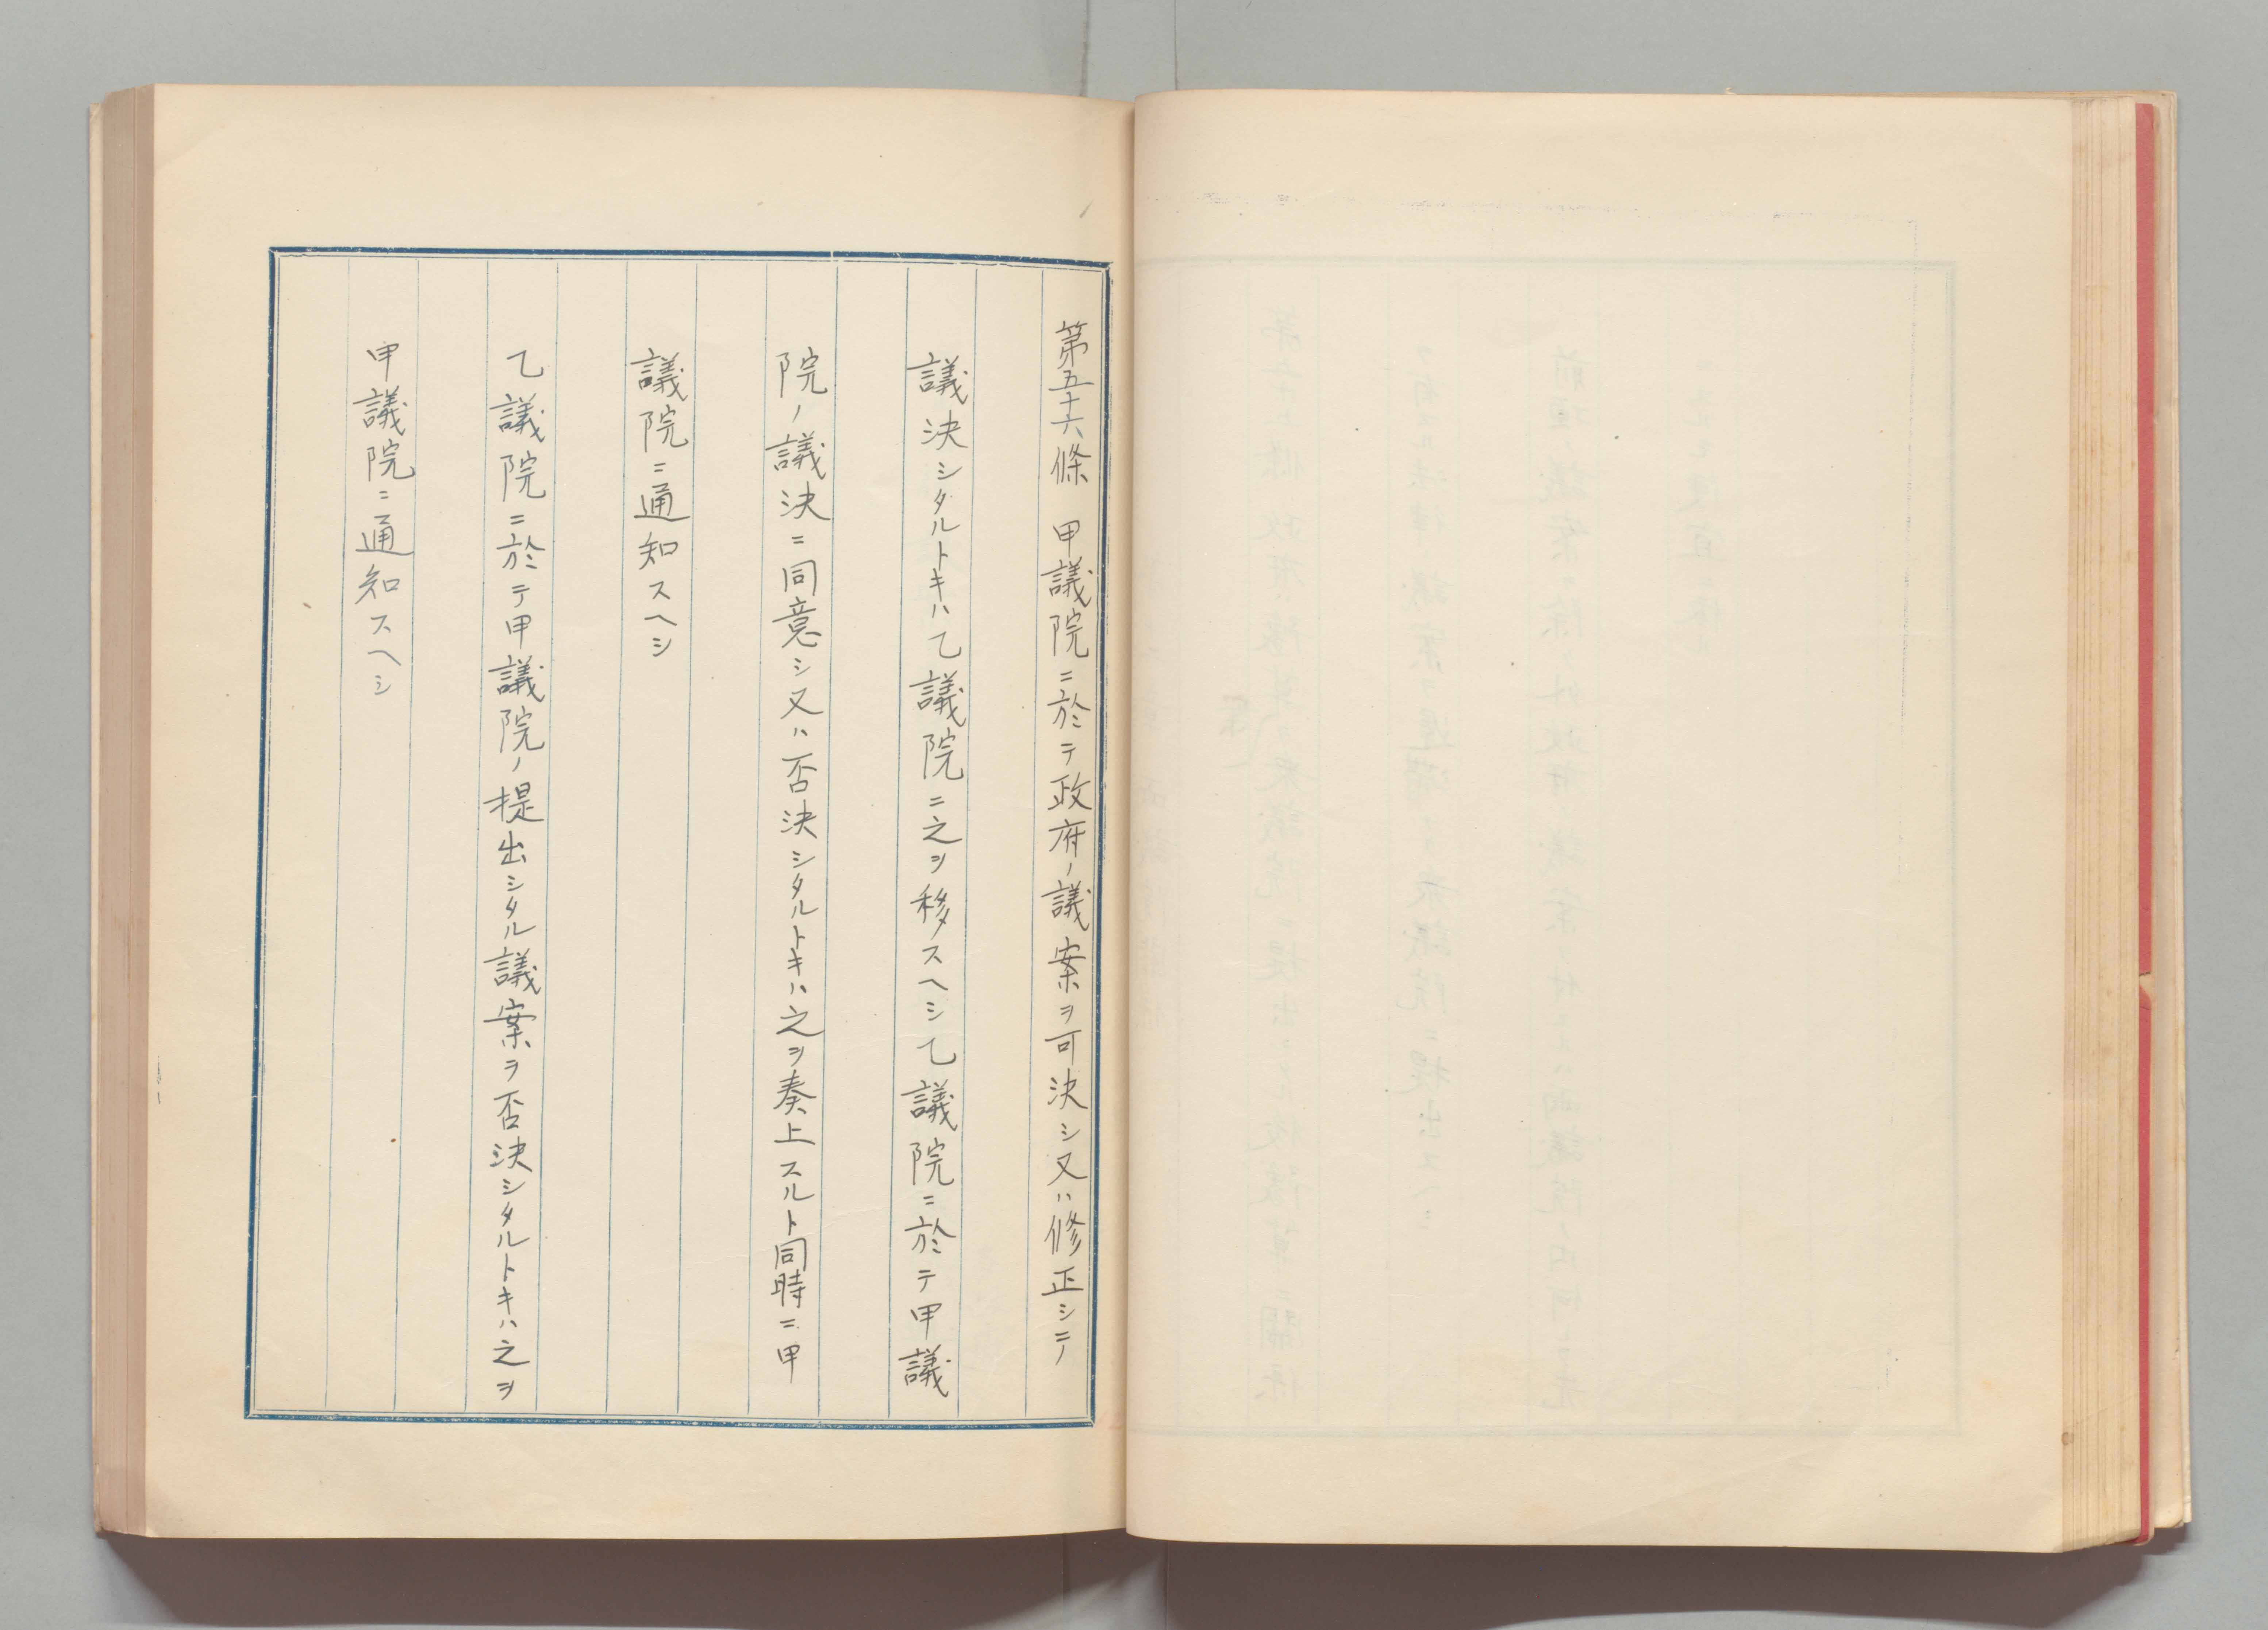 第五十六條　甲議院ニ於テ政府ノ議案ヲ可決シ又ハ修正シテ
議決シタルトキハ乙議院ニ之ヲ移スヘシ乙議院ニ於テ甲議
院ノ議決ニ同意シ又ハ否決シタルトキハ之ヲ奏上スルト同時ニ甲
議院ニ通知スヘシ
乙議院ニ於テ甲議院ノ提出シタル議案ヲ否決シタルトキハ之ヲ
甲議院ニ通知スヘシ